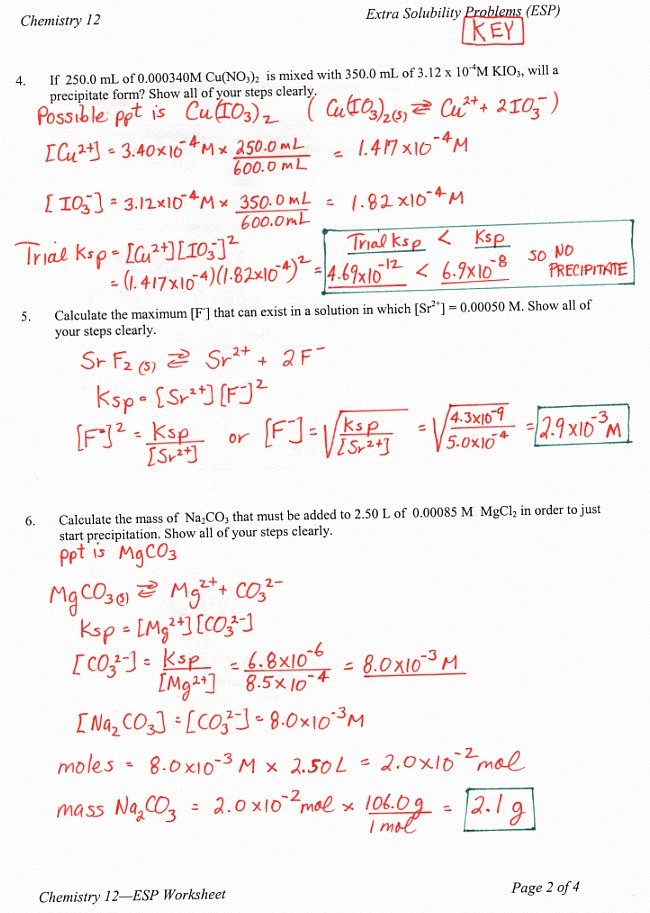 Chemistry 12
Extra Solubility Problems (ESP)
KEY
4. If 250.0 mL of 0.000340M Cu(NO₃)₂ is mixed with 350.0 mL of 3.12 x 10⁻⁴M KIO₃, will a
precipitate form? Show all of your steps clearly.
Possible ppt is Cu(IO₃)₂ ( Cu(IO₃)₂(s) ⇌ Cu²⁺ + 2IO₃⁻ )
[Cu²⁺] = 3.40x10⁻⁴M x 250.0mL / 600.0mL = 1.417x10⁻⁴M
[IO₃⁻] = 3.12x10⁻⁴M x 350.0mL / 600.0mL = 1.82x10⁻⁴M
Trial Ksp = [Cu²⁺][IO₃⁻]²
= (1.417x10⁻⁴)(1.82x10⁻⁴)² =
Trial ksp < Ksp
4.69x10⁻¹² < 6.9x10⁻⁸
SO NO
PRECIPITATE
5. Calculate the maximum [F⁻] that can exist in a solution in which [Sr²⁺] = 0.00050 M. Show all of
your steps clearly.
SrF₂(s) ⇌ Sr²⁺ + 2F⁻
Ksp = [Sr²⁺][F⁻]²
[F⁻]² = Ksp / [Sr²⁺] or [F⁻] = √(Ksp / [Sr²⁺]) = √(4.3x10⁻⁹ / 5.0x10⁻⁴) = 2.9x10⁻³M
6. Calculate the mass of Na₂CO₃ that must be added to 2.50 L of 0.00085 M MgCl₂ in order to just
start precipitation. Show all of your steps clearly.
ppt is MgCO₃
MgCO₃(s) ⇌ Mg²⁺ + CO₃²⁻
Ksp = [Mg²⁺][CO₃²⁻]
[CO₃²⁻] = Ksp / [Mg²⁺] = 6.8x10⁻⁶ / 8.5x10⁻⁴ = 8.0x10⁻³M
[Na₂CO₃] = [CO₃²⁻] = 8.0x10⁻³M
moles = 8.0x10⁻³M x 2.50L = 2.0x10⁻²mol
mass Na₂CO₃ = 2.0x10⁻²mol x 106.0g / 1mol = 2.1g
Chemistry 12—ESP Worksheet
Page 2 of 4